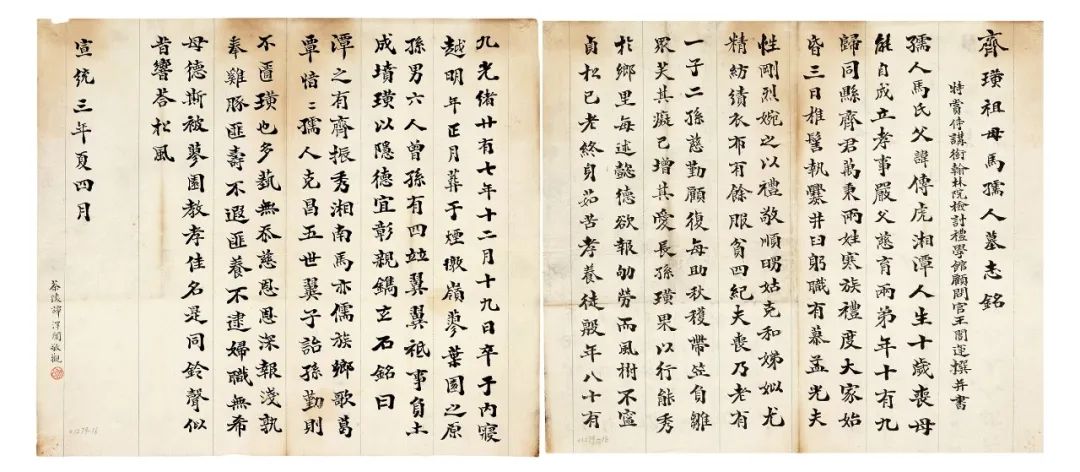 齊璜祖母馬孺人墓志銘
特賞侍講銜翰林院檢討禮學館顧問官王闓運撰并書
孺人馬氏父諱傳虎湘潭人生十歲喪母
能自成立孝事嚴父慈育兩弟年十有九
歸同縣齊君萬秉兩姓寒族禮度大家始
昏三日椎髻執爨井臼躬職有慕孟光夫
性剛烈婉之以禮敬順姑克和娣姒尤
精紡績衣布有餘服貧四紀夫喪乃老有
一子二孫慈勤顧復每助秋穫帶笠負雛
眾笑其癡已增其愛長孫璜果以行能秀
於鄉里每述懿德欲報劬勞而風樹不寧
貞松已老終身茹苦孝養徒殷年八十有
九光緒廿有七年十二月十九日卒于內寢
越明年正月葬于煙墩嶺蓼葉園之原
孫男六人曾孫有四竝翼翼祇事負土
成墳璜以隱德宜彰親鐫立石銘曰
潭之有齊振秀湘南馬亦儒族鄉歌葛
覃愔〻孺人克昌五世翼子詒孫勤則
不匱璜也多蓺無忝慈恩恩深報淺孰
奉雞豚匪壽不遐匪養不逮婦職無希
母德斯被蓼園教孝佳名是同鈴聲似
昔響答松風
宣統三年夏四月
茶陵譚澤闓敬觀